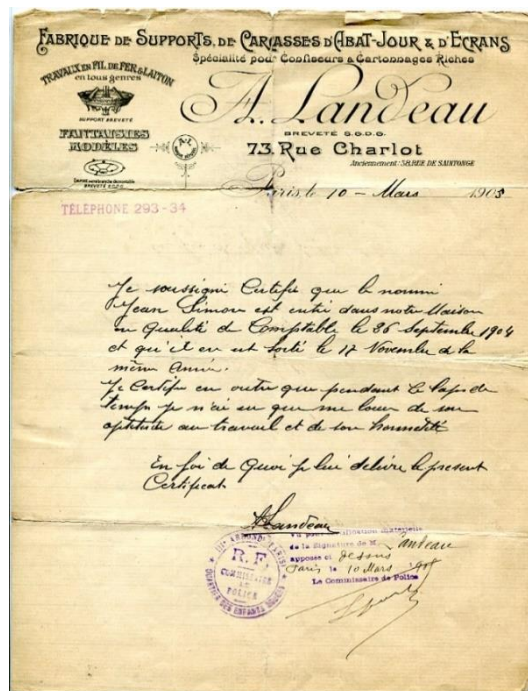 FABRIQUE DE SUPPORTS, DE CARCASSES D'ABAT-JOUR & D'ECRANS
Spécialité pour Confiseurs & Cartonnages Riches
TRAVAUX EN FIL DE FER & LAITON
en tous genres
SUPPORT BREVETÉ
FANTAISIES
MODÈLES
BREVETÉ S.G.D.G.
A. Landeau
BREVETÉ S.G.D.G.
73, Rue Charlot
Anciennement: 58, RUE DE SAINTONGE
Paris, le 10 - Mars 1905
TÉLÉPHONE 293-34
Je soussigné Certifie que le nommé
Jean Simon est entré dans notre Maison
en Qualité de Comptable le 26 Septembre 1904
et qu'il en est sorti le 17 Novembre de la
même Année.
Je Certifie en outre que pendant ce laps de
temps je n'ai eu que me louer de son
aptitude au travail et de son honnêteté
En foi de Quoi je lui délivre le présent
Certificat
A Landeau
IIIe ARRONDt PARIS
R.F.
COMMISSAIRE
DE
POLICE
QUARTIER DES ENFANTS ROUGES
Vu pour matérielle
de la Signature de M. Landeau
apposée ci dessus
Paris le 10 Mars 1905
Le Commissaire de Police